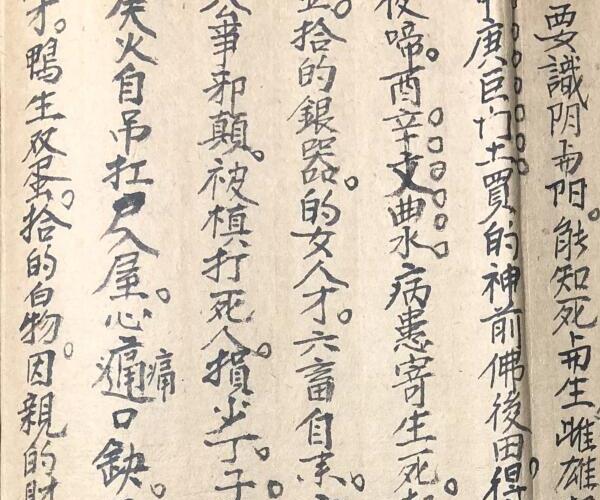 要識阴与阳。能知死与生雌雄
庚巨门土買的神前佛後田得
夜啼。酉辛文曲水病患寄生死
拾的銀器。的女人才。六畜自来。
公事邪顛。被棋打死人。損少丁子。
火自吊扛尸入屋。心痛痛口缺。
才。鴨生双蛋。拾的白物。因親的財